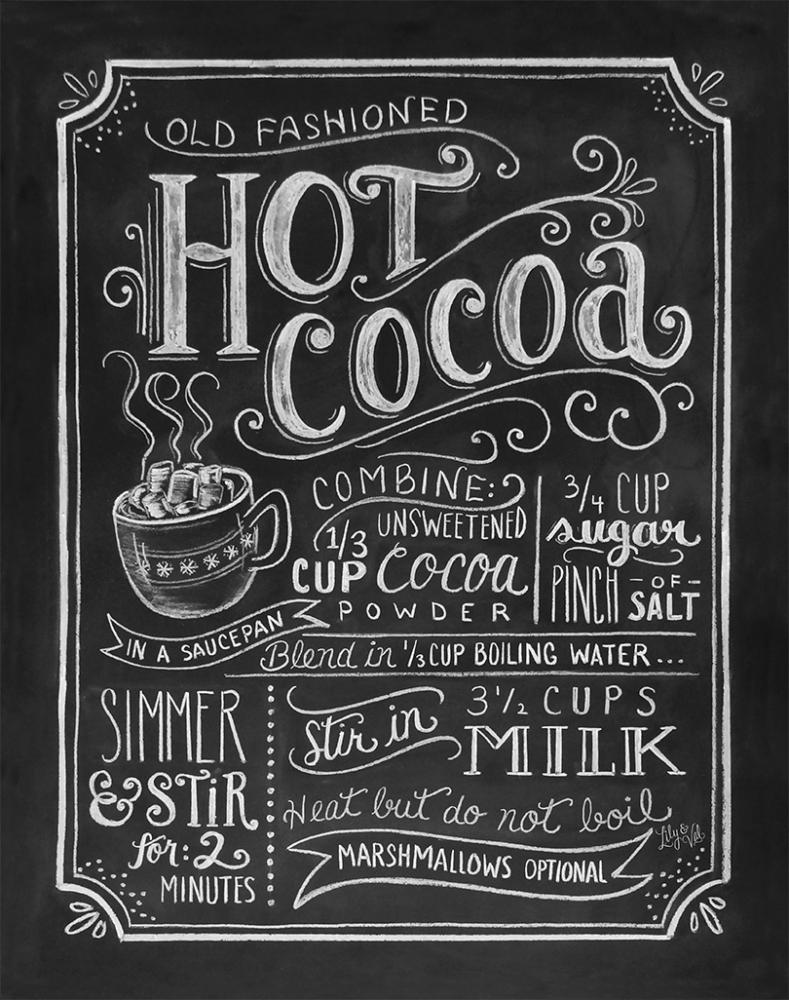 OLD FASHIONED
HOT
COCOA
COMBINE:
1/3
UNSWEETENED
CUP Cocoa
POWDER
3/4 CUP
sugar
PINCH -OF-
SALT
IN A SAUCEPAN
Blend in 1/3 CUP BOILING WATER...
SIMMER
& STiR
for: 2
MINUTES
Stir in
3 1/2 CUPS
MILK
Heat but do not boil
MARSHMALLOWS OPTIONAL
Lily & Val